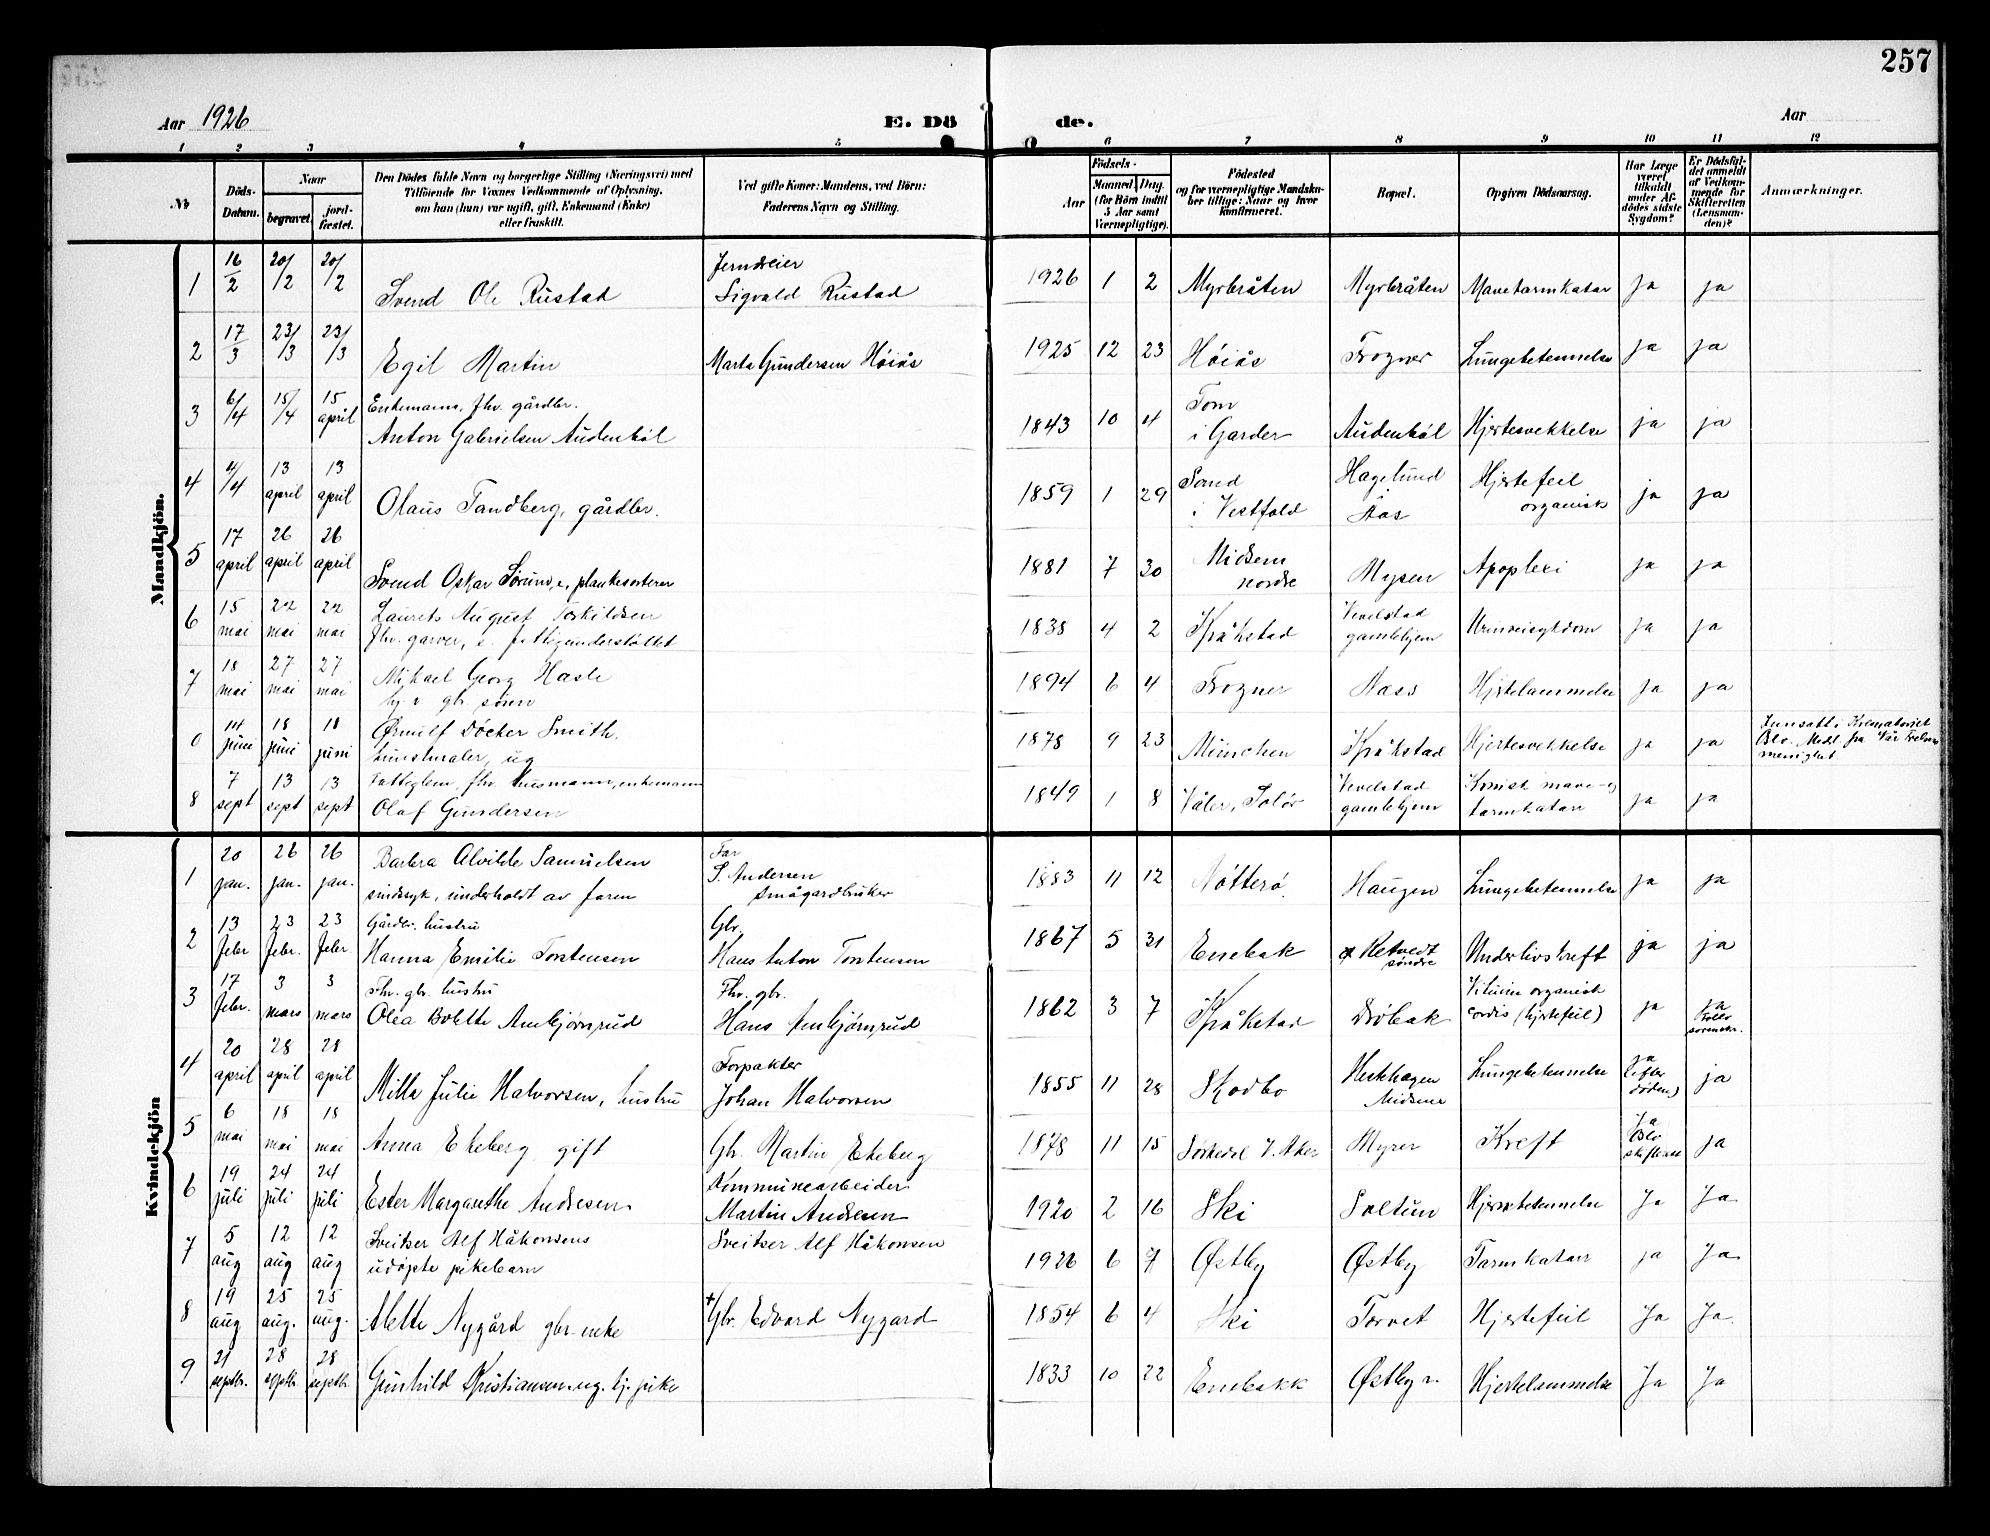 257
Aar 1926
E. Dö de.
Aar
1 2 3 4 5 6 7 8 9 10 11 12
№
Döds-Datum.
Naar
begravet.
jord-fæstet.
Den Dödes fulde Navn og borgerlige Stilling (Næringsvei) med
Tilföiende for Voxnes Vedkommende af Oplysning,
om han (hun) var ugift, gift, Enkemand (Enke)
eller fraskilt.
Ved gifte Koner: Mandens, ved Börn:
Faderens Navn og Stilling.
Födsels-
Aar
Maaned Dag
(for Börn indtil
5 Aar samt
Værnepligtige).
Födested
og for værnepligtige Mandskaber tillige: Naar og hvor konfirmeret.
Bopæl.
Opgiven Dödsaarsag.
Har Læge været tilkaldt under Afdödes sidste Sygdom?
Er Dödsfaldet anmeldt af Vedkommende for Skifteretten (Lensmanden)?
Anmærkninger.
Mandkjön.
1 16/2 20/2 20/2 Svend Ole Rustad Jernbeier Sigvald Rustad 1926 1 2 Myrbråten Myrbråten Mavetarmkatar ja ja
2 17/3 23/3 23/3 Egil Martin Marta Gundersen Höiås 1925 12 23 Höiås Frogner Lungebetennelse ja ja
3 6/4 15/4 15 april Enkemann, fhv. gårdbr.
Anton Gabrielsen Audenböl 1843 10 4 Tom i Garder Audenböl Hjertesvekkelse ja ja
4 4/4 13 april 13 april Olaus Tandberg, gårdbr. 1859 1 29 Sand i Vestfold Hagelund Ås Hjertefeil organisk ja ja
5 17 april 26 april 26 april Svend Oskar Sörum, e, plankesorterer 1881 7 30 Midsem nordre Mysen Apoplexi ja ja
6 15 mai 22 mai 22 mai Laurits August Torkildsen
fhv. garver, e. fattigunderstöttet 1838 4 2 Kråkstad Vevelstad gamlehjem Urinveisykdom ja ja
7 18 mai 27 mai 27 mai Mikael Georg Hasle
1894 6 4 Frogner Næss Hjertelammelse ja ja
0 14 juni 18 juni 18 juni Ørnulf Döcker Smith.
kunstmaler, ug 1878 9 23 München Kråkstad Hjertesvekkelse ja ja Innsatt i Krematoriet
menighet
8 7 sept 13 sept 13 sept Fattiglem, fhv. husmann, enkemann
Olaf Gundersen 1849 1 8 Våler, Solör Vevelstad gamlehjem Kronisk mave- og tarmkatarr ja ja
Kvindekjön
1 20 jan. 26 jan. 26 jan. Barbra Alvilde Samuelsen
sindssyk, underholdt av faren Far S. Andersen smågardbruker 1883 11 12 Nötterö Haugen Lungebetennelse ja ja
2 13 febr 23 febr. 23 febr Gårdbr. hustru
Hanna Emilie Torstensen Gbr. Hans Anton Torstensen 1867 5 31 Enebak Retvedt söndre Underlivskreft ja ja
3 17 febr. 3 mars 3 mars Fhv. gbr. hustru
Olea Bolette Ambjörnsrud Fhv. gbr. Hans Ambjörnsrud 1862 3 7 Kråkstad Dröbak Vitium organisk cordis (hjertefeil) ja ja
4 20 april 28 april 28 april Milla Julie Halvorsen, hustru Forpakter Johan Halvorsen 1855 11 28 Skodbo Midsem Lungebetennelse ja (efter döden) ja
5 6 mai 18 mai 18 mai Anna Ekeberg gift Gbr. Martin Ekeberg 1878 11 15 Sörkedal V. Aker Myrer Kreft ja ja
6 19 juli 24 juli 24 juli Ester Margarethe Andresen Kommunearbeider Martin Andresen 1920 2 16 Ski Soltun Hjernebetennelse Ja Ja
7 5 aug 12 aug 12 aug Sveitser Alf Håkonsens
udöpte pikebarn Sveitser Alf Håkonsen 1926 6 7 Østby Østby Tarmkatarr ja Ja
8 19 aug 25 aug. 25 aug. Alette Nygård gbr. enke +Gbr. Edvard Nygard 1854 6 4 Ski Torvet Hjertefeil Ja Ja.
9 21 septbr. 28 septbr. 28 septbr. Gunhild Kristiansen, ug. tj. pike 1833 10 22 Enebakk Østby n. Hjertelammelse Ja Ja